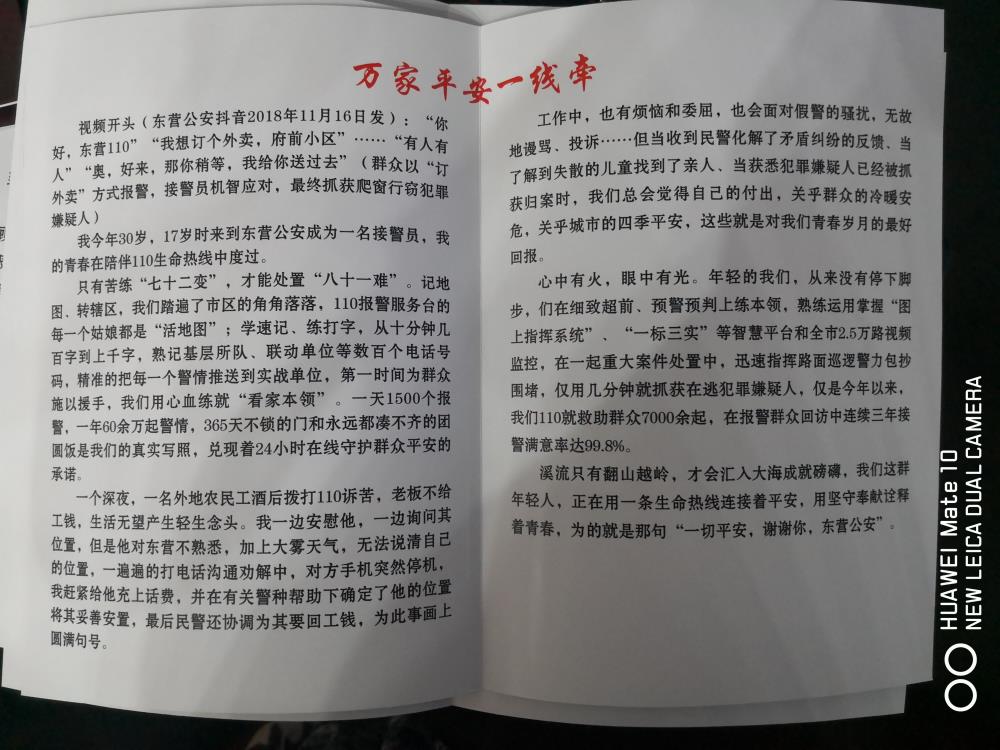 万家平安一线牵
视频开头（东营公安抖音2018年11月16日发）：“你
好，东营110”“我想订个外卖，府前小区”……“有人有
人”“奥，好来，那你稍等，我给你送过去”（群众以“订
外卖”方式报警，接警员机智应对，最终抓获爬窗行窃犯罪
嫌疑人）
我今年30岁，17岁时来到东营公安成为一名接警员，我
的青春在陪伴110生命热线中度过。
只有苦练“七十二变”，才能处置“八十一难”。记地
图、转辖区，我们踏遍了市区的角角落落，110报警服务台的
每一个姑娘都是“活地图”；学速记、练打字，从十分钟几
百字到上千字，熟记基层所队、联动单位等数百个电话号
码，精准的把每一个警情推送到实战单位，第一时间为群众
施以援手，我们用心血练就“看家本领”。一天1500个报
警，一年60余万起警情，365天不锁的门和永远都凑不齐的团
圆饭是我们的真实写照，兑现着24小时在线守护群众平安的
承诺。
一个深夜，一名外地农民工酒后拨打110诉苦，老板不给
工钱，生活无望产生轻生念头。我一边安慰他，一边询问其
位置，但是他对东营不熟悉，加上大雾天气，无法说清自己
的位置，一遍遍的打电话沟通劝解中，对方手机突然停机，
我赶紧给他充上话费，并在有关警种帮助下确定了他的位置
将其妥善安置，最后民警还协调为其要回工钱，为此事画上
圆满句号。
工作中，也有烦恼和委屈，也会面对假警的骚扰，无故
地谩骂、投诉……但当收到民警化解了矛盾纠纷的反馈、当
了解到失散的儿童找到了亲人、当获悉犯罪嫌疑人已经被抓
获归案时，我们总会觉得自己的付出，关乎群众的冷暖安
危，关乎城市的四季平安，这些就是对我们青春岁月的最好
回报。
心中有火，眼中有光。年轻的我们，从来没有停下脚
步，们在细致超前、预警预判上练本领，熟练运用掌握“图
上指挥系统”、“一标三实”等智慧平台和全市2.5万路视频
监控，在一起重大案件处置中，迅速指挥路面巡逻警力包抄
围堵，仅用几分钟就抓获在逃犯罪嫌疑人，仅是今年以来，
我们110就救助群众7000余起，在报警群众回访中连续三年接
警满意率达99.8%。
溪流只有翻山越岭，才会汇入大海成就磅礴，我们这群
年轻人，正在用一条生命热线连接着平安，用坚守奉献诠释
着青春，为的就是那句“一切平安，谢谢你，东营公安”。
HUAWEI Mate 10
NEW LEICA DUAL CAMERA